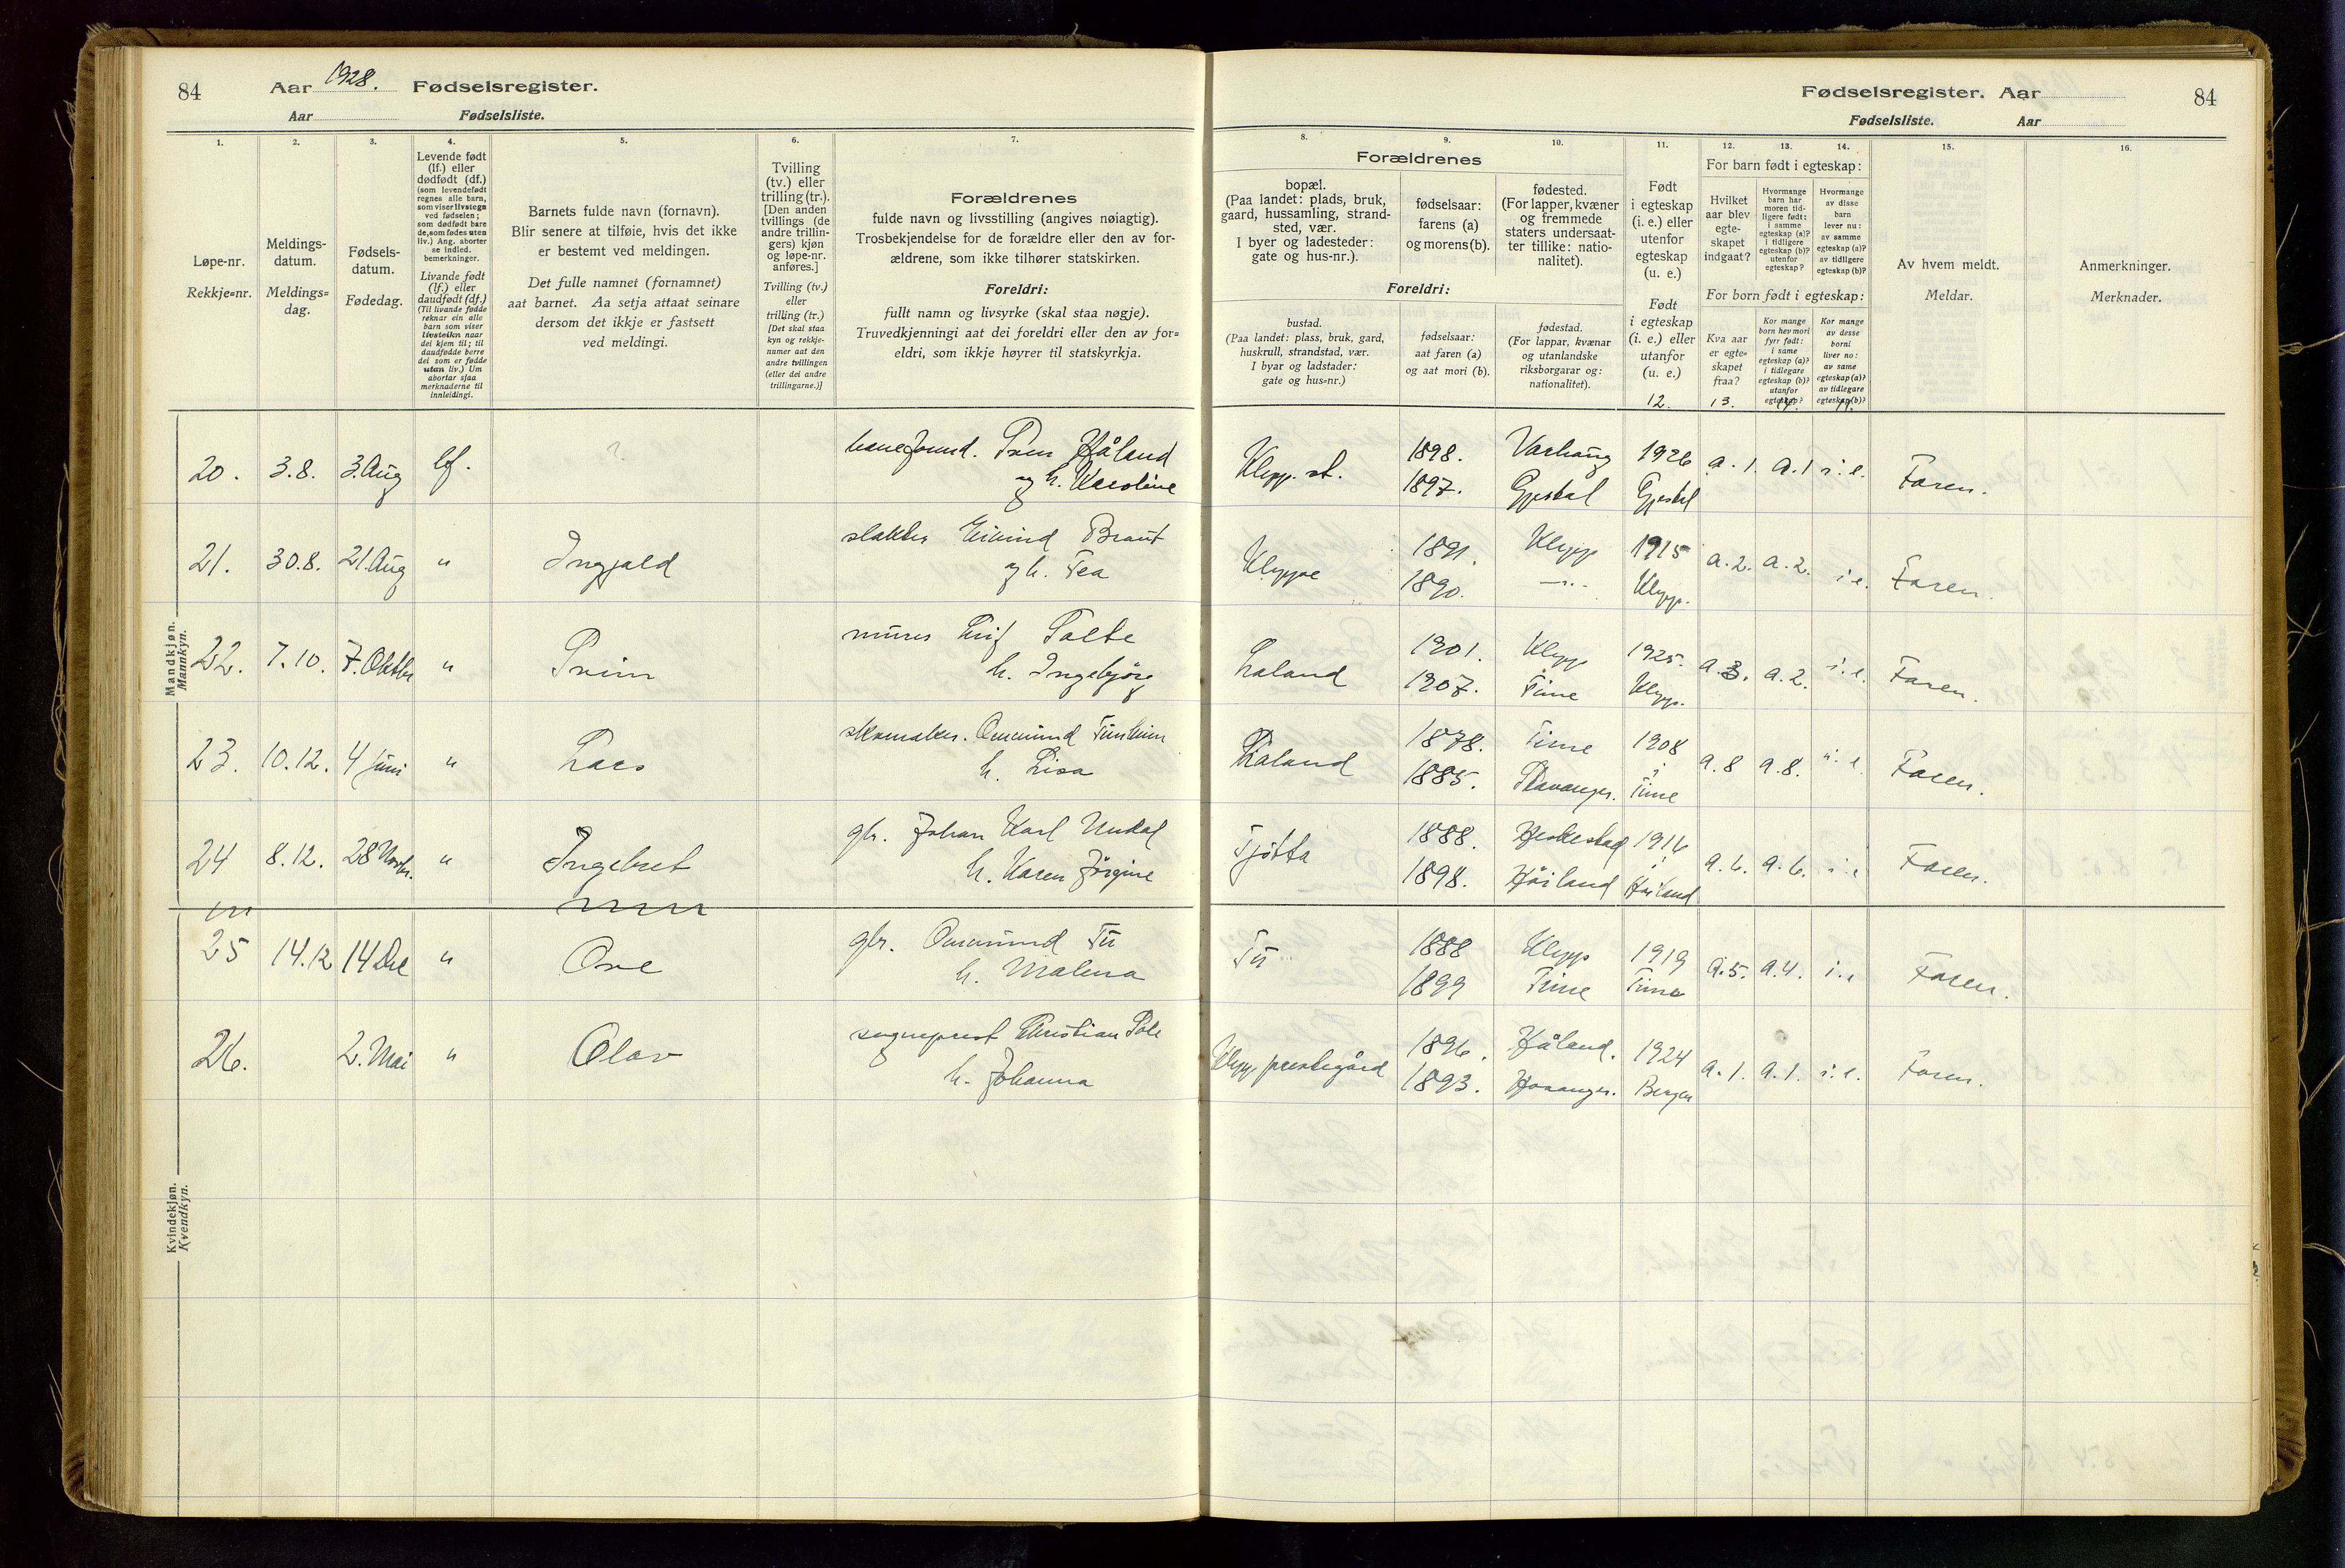 84
Aar 1928. Fødselsregister.
Aar Fødselsliste.
1.
2.
3.
4.
5.
6.
7.
Løpe-nr.
Rekkje=nr.
Meldings-
datum.
Meldings=
dag.
Fødsels-
datum.
Fødedag.
Levende født
(lf.) eller
dødfødt (df.)
(som levendefødt
regnes alle barn,
som viser livstegn
ved fødselen;
som dødfødt bare
de, som fødes uten
liv.) Ang. aborter
se indled.
bemerkninger.
Livande født
(lf.) eller
daudfødt (df.)
(Til livande fødde
reknar ein alle
barn som viser
livsteikn naar
dei kjem til; til
daudfødde berre
dei som er fødde
utan liv.) Um
abortar sjaa
merknaderne til
innleidingi.
Barnets fulde navn (fornavn).
Blir senere at tilføie, hvis det ikke
er bestemt ved meldingen.
Det fulle namnet (fornamnet)
aat barnet. Aa setja attaat seinare
dersom det ikkje er fastsett
ved meldingi.
Tvilling
(tv.) eller
trilling (tr.).
[Den anden
tvillings (de
andre trillin-
gers) kjøn
og løpe-nr.
anføres.]
Tvilling (tv.)
eller
trilling (tr.)
[Det skal staa
kyn og rekkje-
numer aat den
andre tvillingen
(eller dei andre
trillingarne.)]
Forældrenes
fulde navn og livsstilling (angives nøiagtig).
Trosbekjendelse for de forældre eller den av for-
ældrene, som ikke tilhører statskirken.
Foreldri:
fullt namn og livsyrke (skal staa nøgje).
Truvedkjenningi aat dei foreldri eller den av for=
eldri, som ikkje høyrer til statskyrkja.
Mandkjøn.
Mannkyn.
20. 3.8. 3. Aug lf. ? Sven Håland
og h. Karoline
21. 30.8. 21. Aug " Ingjald slakter Eivind Braut
og h. Tea
22. 7.10. 7. Oktbr " Svein murer Leif Salte
h. Ingebjørg
23. 10.12. 4 juni " Lars skomaker. Ommund Tunheim
h. Lisa
24 8.12. 28 Novbr. " Ingebret gbr. Johan Karl Undal
h. Karen Jørgine
25 14.12 14 Des " Ove gbr. Ommund Tu
h. Malena
26. 2. Mai " Olav sogneprest Christian Sale
h. Johanna
Kvindekjøn.
Kvendkyn.
Fødselsregister. Aar
84
Fødselsliste. Aar
8.
9.
10.
11.
12.
13.
14.
15.
16.
Forældrenes
bopæl.
(Paa landet: plads, bruk,
gaard, hussamling, strand-
sted, vær.
I byer og ladesteder:
gate og hus-nr.).
fødselsaar:
farens (a)
og morens (b).
fødested.
(For lapper, kvæner
og fremmede
staters undersaat-
ter tillike: natio-
nalitet).
Foreldri:
bustad.
(Paa landet: plass, bruk, gard,
huskrull, strandstad, vær.
I byar og ladstader:
gate og hus=nr.)
fødselsaar:
aat faren (a)
og aat mori (b).
fødestad.
(For lappar, kvænar
og utanlandske
riksborgarar og:
nationalitet).
Født
i egteskap
(i. e.) eller
utenfor
egteskap
(u. e.)
Født
i egteskap
(i. e.) eller
utanfor
(u. e.)
12.
For barn født i egteskap:
Hvilket
aar blev
egte-
skapet
indgaat?
Hvormange
barn har
moren tid-
ligere født:
i samme
egteskap (a)?
i tidligere
egteskap (b)?
utenfor
egteskap?
Hvormange
av disse
barn
lever nu:
av samme
egteskap (a)?
av tidligere
egteskap (b)?
For born født i egteskap:
Kva aar
er egte=
skapet
fraa?
13.
Kor mange
born hev mori
fyrr født:
i same
egteskap (a)?
i tidlegare
egteskap (b)?
utanfor
egteskap?
Kor mange
av desse
borni
liver no:
av same
egteskap (a)?
av tidlegare
egteskap (b)?
Av hvem meldt.
Meldar.
Anmerkninger.
Merknader.
Klepp st. 1898. Varhaug 1926 a. 1. a. 1 i. e. Faren.
1897. Gjestal Gjestal
Kleppe 1891. Klepp 1915 a. 2. a. 2. i. e. Faren.
1890. —"— Klepp.
Laland 1901. Klepp 1925. a. 3. a. 2. i. e. Faren.
1907. Time Klepp.
Laland 1878. Time 1908 a. 8 a. 8. i. e. Faren.
1885. Stavanger. i Time
Tjøtta 1888. Heskestad 1916 a. 6. a. 6. i. e Faren.
1898. Håiland i Håiland
Tu 1888 Klepp 1919 a. 5. a. 4. i. e Faren.
1899 Time Time
Klepp prestegård 1896. Håland. 1924 a. 1. a. 1. i. e. Faren.
1893. Bergen